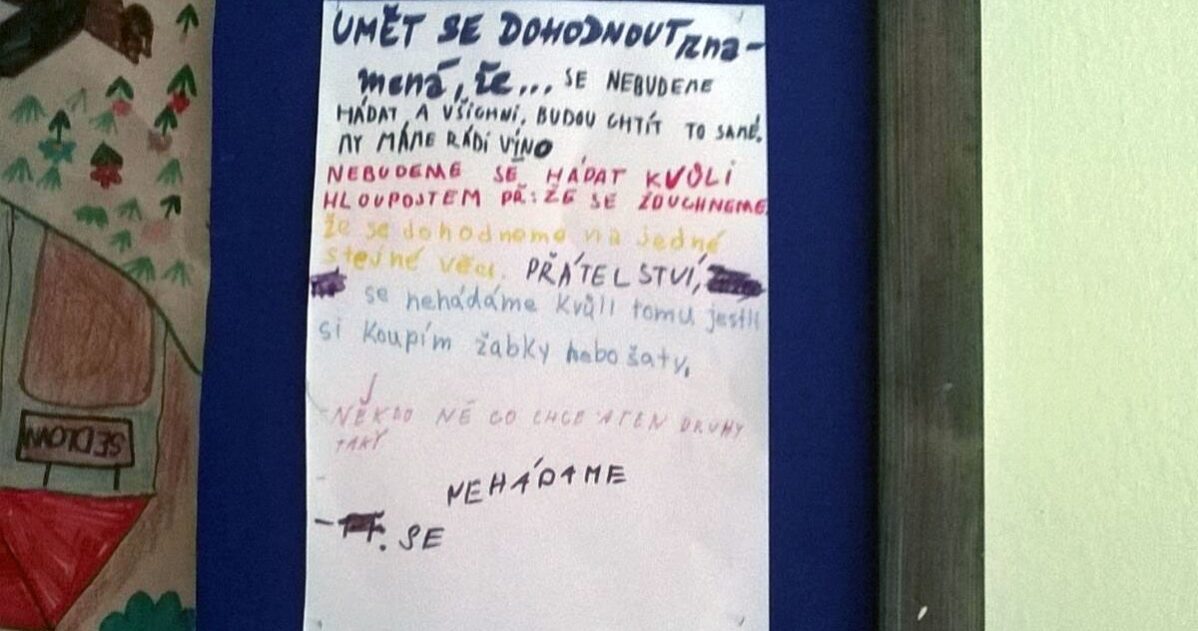 UMĚT SE DOHODNOUT zna-
mená, že... SE NEBUDEME
HÁDAT A VŠICHNI, BUDOU CHTÍT TO SAMÉ.
MY MÁME RÁDI VÍNO
NEBUDEME SE HÁDAT KVŮLI
HLOUPOSTEM PŘ: ŽE SE ŽDUCHNEME
že se dohodneme na jedné
stejné věci. PŘÁTELSTVÍ,
se nehádáme kvůli tomu jestli
si koupím žabky nebo šaty.
NĚKDO NĚ CO CHCE A TEN DRUHY
TAKY
NEHÁDAME
- . SE
SEDLOWN